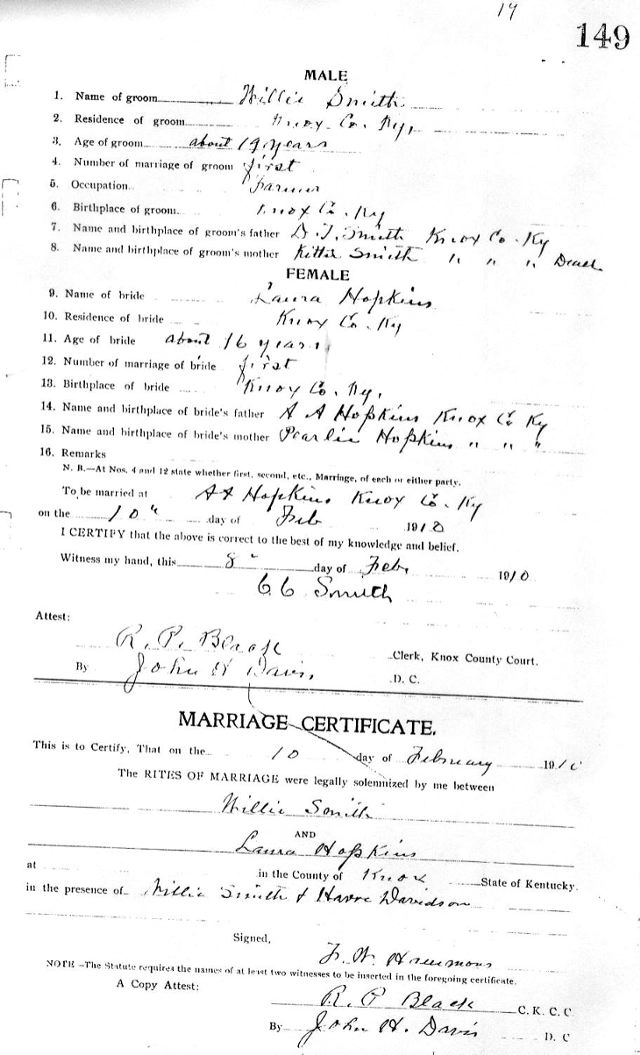 14
149
MALE
1. Name of groom Willie Smith
2. Residence of groom Knox Co. Ky,
3. Age of groom about 19 years
4. Number of marriage of groom first
5. Occupation Farmer
6. Birthplace of groom Knox Co. Ky
7. Name and birthplace of groom's father D. T. Smith Knox Co. Ky
8. Name and birthplace of groom's mother Smith " " " Dead
FEMALE
9. Name of bride Laura Hopkins
10. Residence of bride Knox Co. Ky
11. Age of bride about 16 years
12. Number of marriage of bride first
13. Birthplace of bride Knox Co. Ky,
14. Name and birthplace of bride's father A A Hopkins Knox Co Ky
15. Name and birthplace of bride's mother Pearlie Hopkins " " "
16. Remarks
N. B.—At Nos. 4 and 12 state whether first, second, etc., Marriage, of each or either party.
To be married at A A Hopkins Knox Co. Ky
on the 10" day of Feb 1910
I CERTIFY that the above is correct to the best of my knowledge and belief.
Witness my hand, this 8" day of Feb, 1910
C C Smith
Attest:
R. P. Black Clerk, Knox County Court.
By John H Davis, D. C.
MARRIAGE CERTIFICATE.
This is to Certify, That on the 10 day of February 1910
The RITES OF MARRIAGE were legally solemnized by me between
Willie Smith
AND
Laura Hopkins
at in the County of Knox State of Kentucky.
in the presence of Willie Smith & Davidson
Signed, W. Hammons
NOTE—The Statute requires the names of at least two witnesses to be inserted in the foregoing certificate.
A Copy Attest:
R. P Black C. K. C. C
By John H. Davis D. C